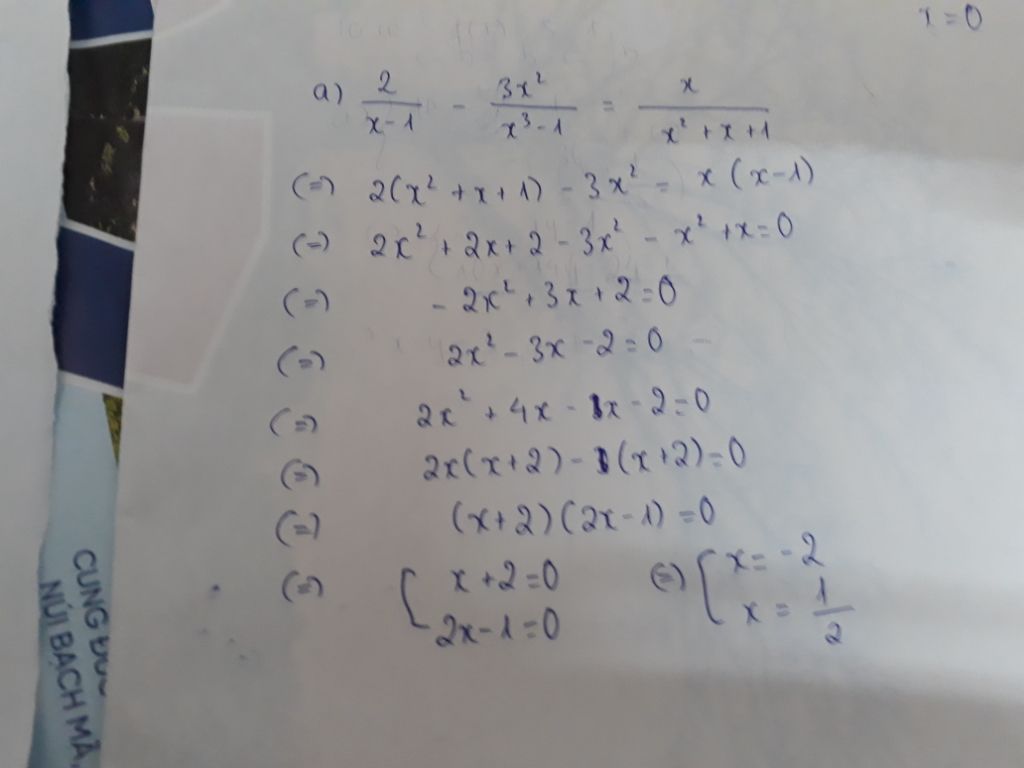 x = 0
a) \frac{2}{x-1} - \frac{3x^2}{x^3-1} = \frac{x}{x^2+x+1}
(=) 2(x² + x + 1) - 3x² = x (x-1)
(=) 2x² + 2x + 2 - 3x² - x² + x = 0
(=) - 2x² + 3x + 2 = 0
(=) 2x² - 3x - 2 = 0
(=) 2x² + 4x - 1x - 2 = 0
(=) 2x(x+2) - 1(x+2) = 0
(=) (x+2)(2x-1) = 0
(=) [ x+2=0 (=) [ x = -2
2x-1=0 x = \frac{1}{2}
CUNG ĐƯỜ
NÚI BẠCH MÃ,